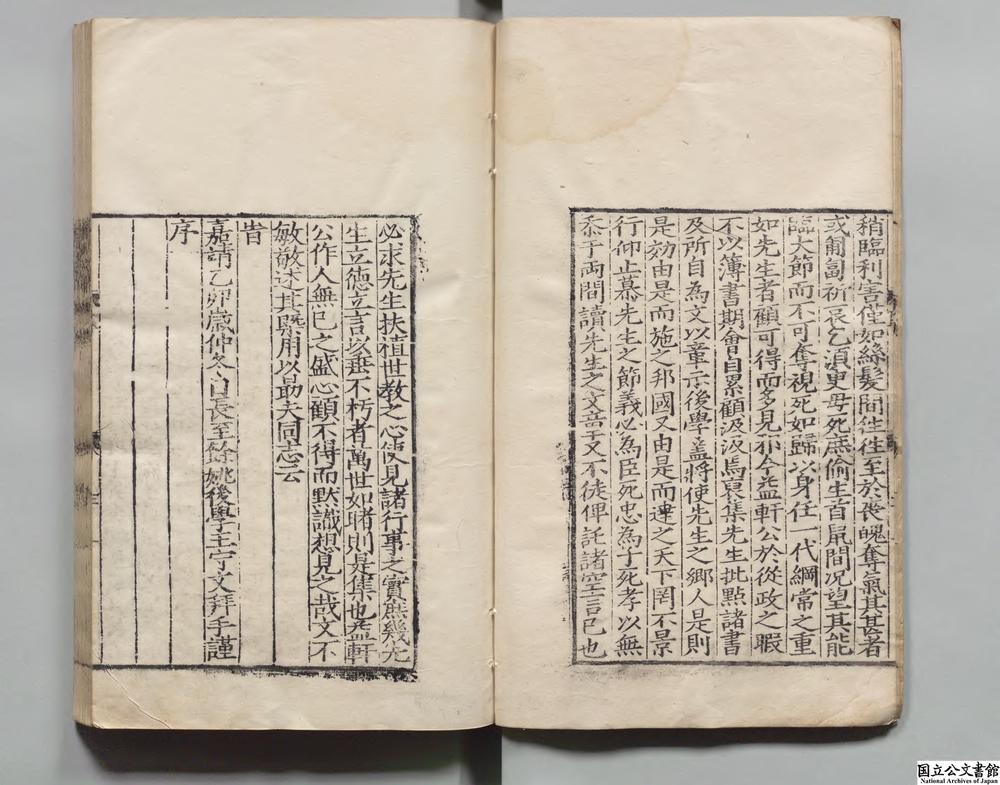 稍臨利害僅如絲髮間徃徃至於喪魄奪氣其甚者
或匍匐祈哀乞湏臾毋死庶偷生首鼠間况望其能
臨大節而不可奪視死如歸以身任一代綱常之重
如先生者顧可得而多見耶今盖軒公於從政之暇
不以簿書期會自累顧汲汲焉裒集先生批點諸書
及所自為文以章示後學盖將使先生之鄉人是則
是効由是而施之邦國又由是而達之天下罔不景
行仰止慕先生之節義必為臣死忠為子死孝以無
忝于兩間讀先生之文音于又不徒俾託諸空言已也
必求先生扶植世教之心使見諸行事之實庶幾先
生立徳立言以垂不朽者萬世如睹則是集也盖軒
公作人無已之盛心顧不得而默識想見之哉文不
敏敬述其槩用以勗夫同志云
旹
嘉靖乙卯歲仲冬日長至餘姚後學王宁文拜手謹
序
国立公文書館
National Archives of Japan